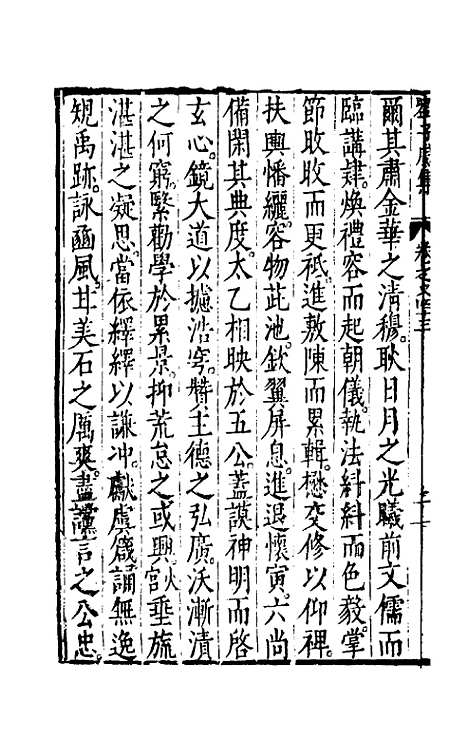 爾其肅金華之清穆。耿日月之光曦前文儒而
臨講肄。煥禮容而起朝儀。執法糾糾而色毅。掌
節𣀮𣀮而更祇。進敷陳而累輯。懋交修以仰裨。
扶輿幡纚。容物茈池。欽翼屏息。進退懷寅。六尚
備閑其典度。太乙相映於五公。蓋謨神明而啓
玄心。鏡大道以攄浩穹。贊主德之弘廣。沃漸漬
之何窮。繄勸學於累景。抑荒怠之或興。宮垂旒
湛湛之凝思。當依繹繹以謙冲。獻虞箴誦無逸
規禹跡。詠豳風。甘美石之厲爽。盡讜言之公忠。